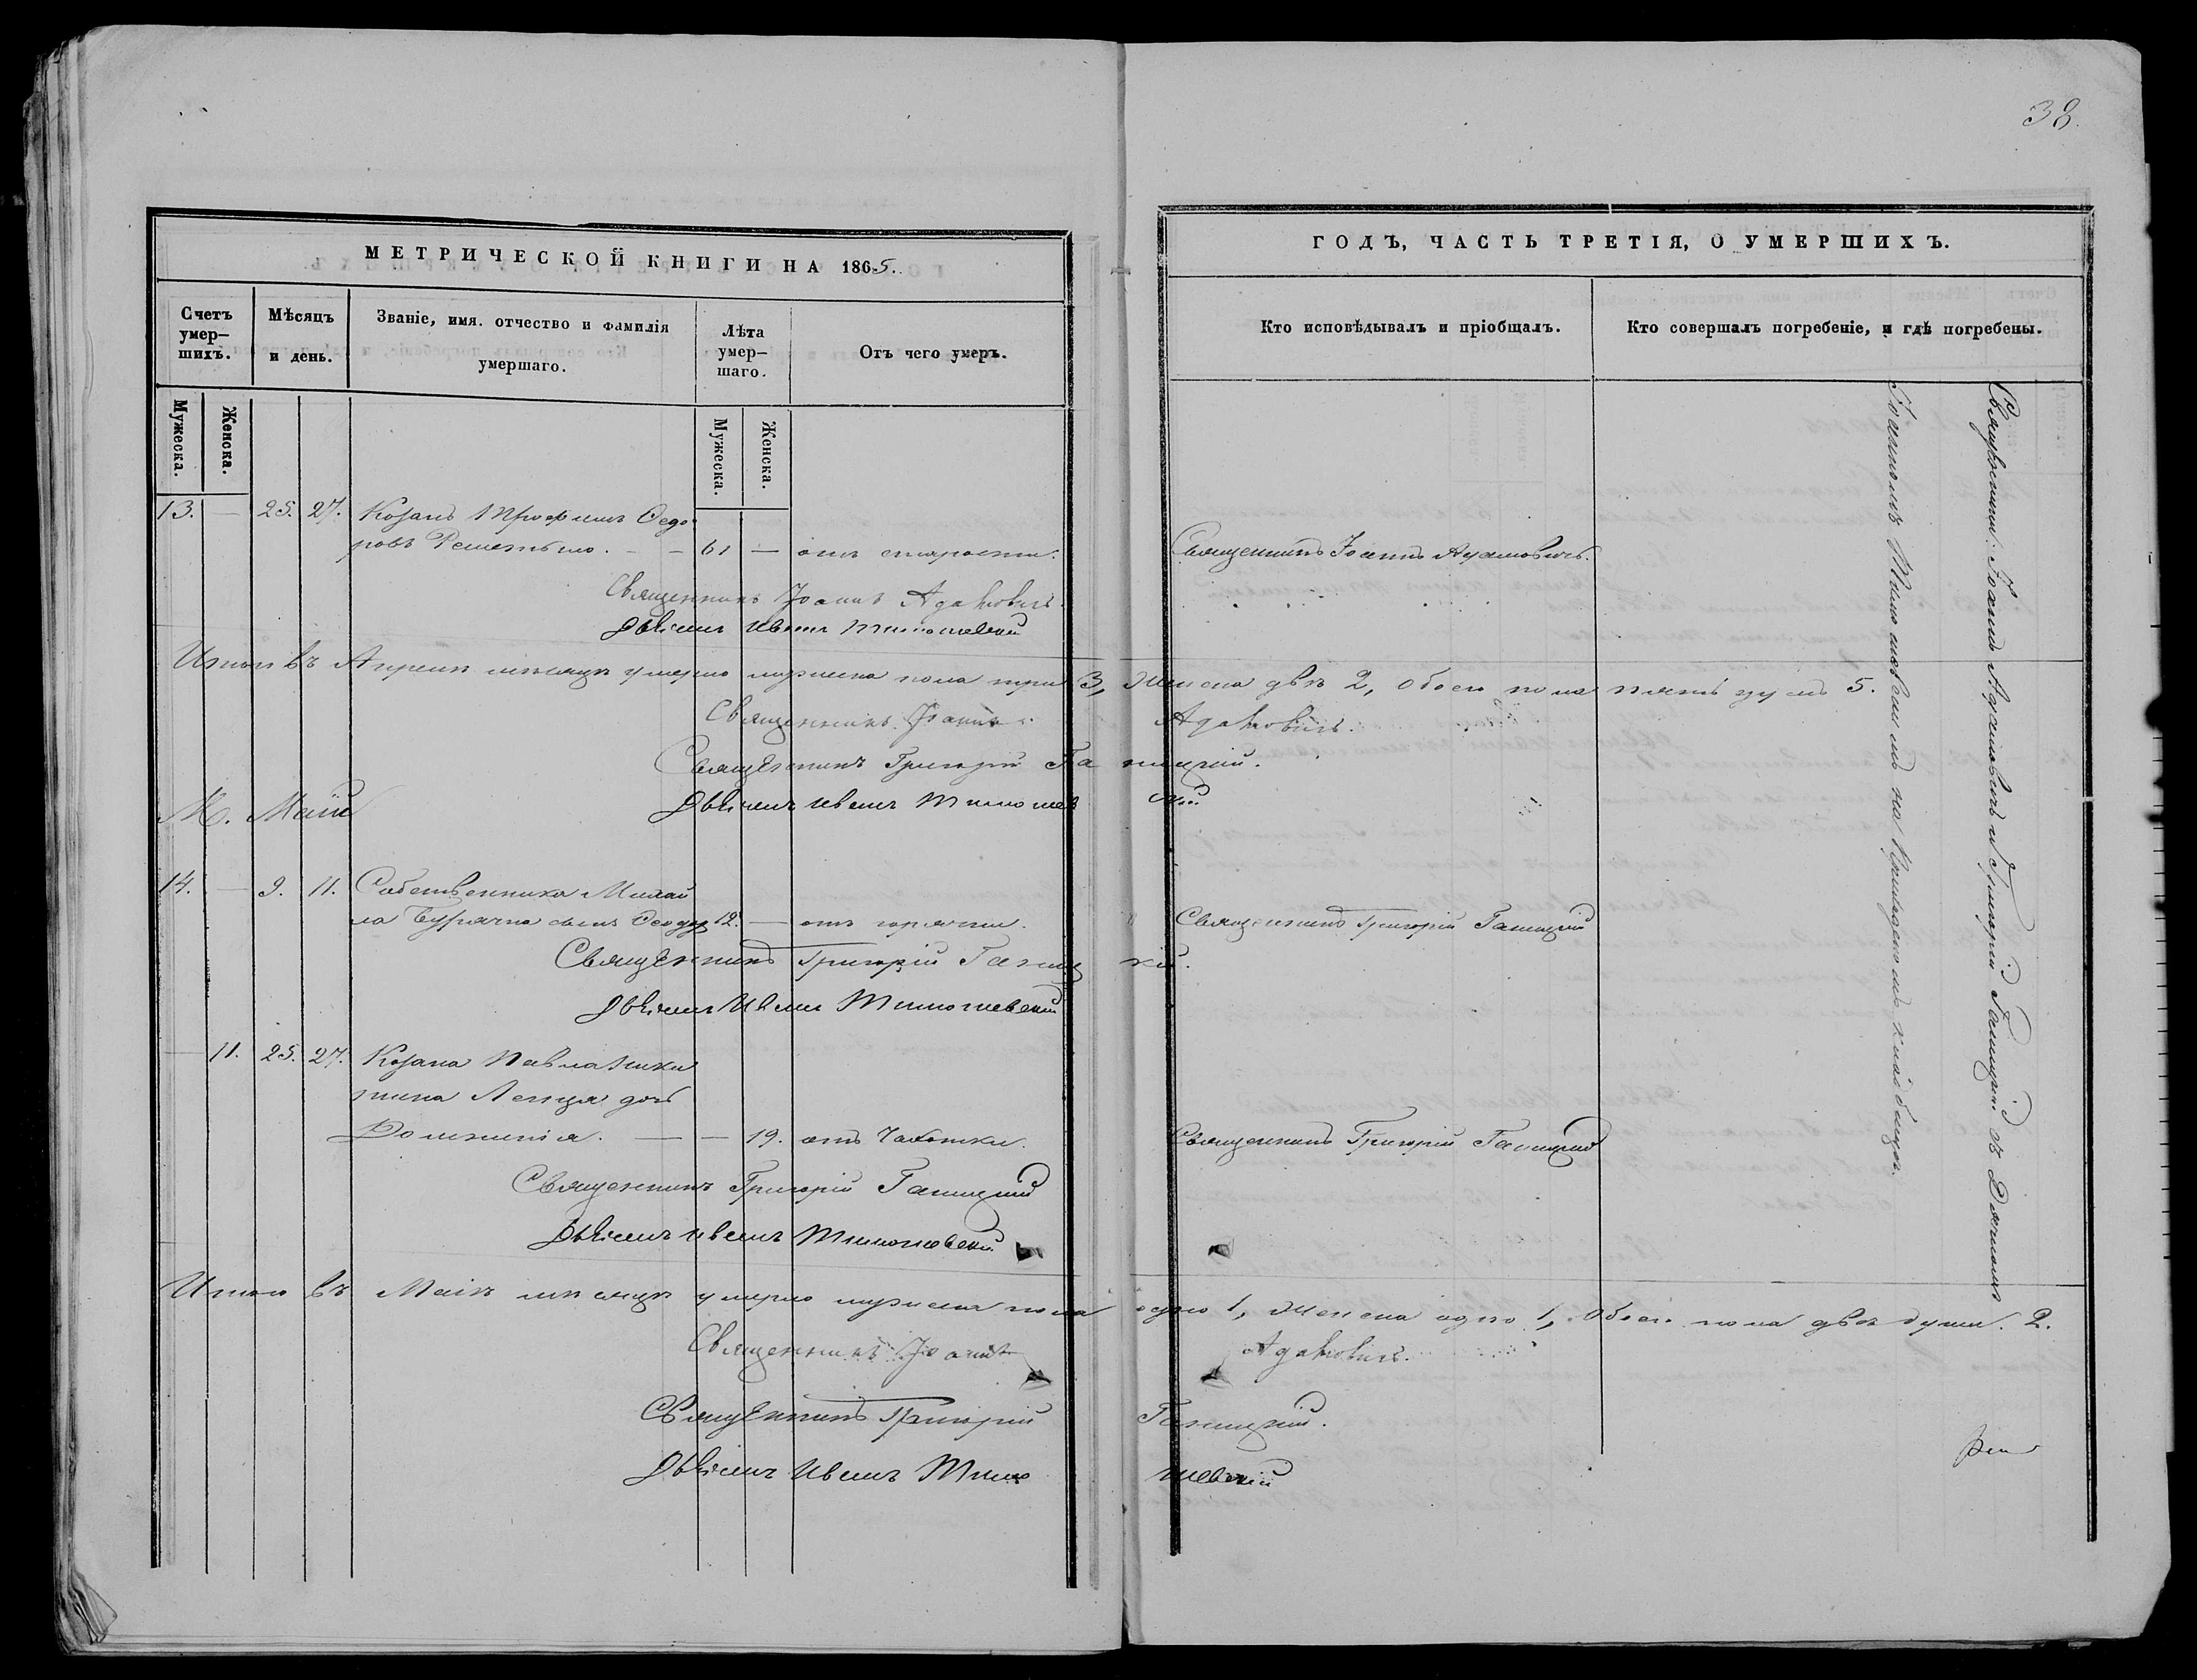 38.
МЕТРИЧЕСКОЙ КНИГИ НА 1865.
ГОДЪ, ЧАСТЬ ТРЕТІЯ, О УМЕРШИХЪ.
Счетъ умер-шихъ.
Мѣсяцъ и день.
Званіе, имя. отчество и фамилія умершаго.
Лѣта умер-шаго.
Отъ чего умеръ.
Кто исповѣдывалъ и пріобщалъ.
Кто совершалъ погребеніе, и гдѣ погребены.
Мужеска.
Женска.
Мужеска.
Женска.
13. — 25. 27. Козакъ Трофимъ Ѳедо
ровъ Решетько. — — 61 — отъ старости. Священникъ Іоаннъ Адамовичъ.
Священникъ Іоаннъ Адамовичъ.
Дьячекъ Иванъ
Итого въ Апрелѣ мѣсяцѣ умерло мужеска пола три 3, женска двѣ 2, обоего пола пять душъ 5.
Священникъ Іоаннъ Адамовичъ.
Священникъ Григорій Галицкій.
Дьячекъ Иванъ
М. Май
14. — 9. 11. Собственника Михай
ла сынъ Ѳеодоръ 12. — отъ горячки. Священникъ Григорій Галицкій
Священникъ Григорій Галицкій.
Дьячекъ Иванъ
— 11. 25. 27. Козака Павла Ники
тина дочь
Домникія. — — 19. отъ чахотки. Священникъ Григорій Галицкій
Священникъ Григорій Галицкій
Дьячекъ Иванъ
Итого въ Маіѣ мѣсяцѣ умерло мужеска пола одно 1, женска одно 1, обоего пола двѣ души. 2.
Священникъ Іоаннъ Адамовичъ.
Священникъ Григорій Галицкій.
Дьячекъ Иванъ
Священники: Іоаннъ Адамовичъ и Григорій Галицкій съ Дьячкомъ
Іоанномъ на Приходскомъ кладбищѣ.